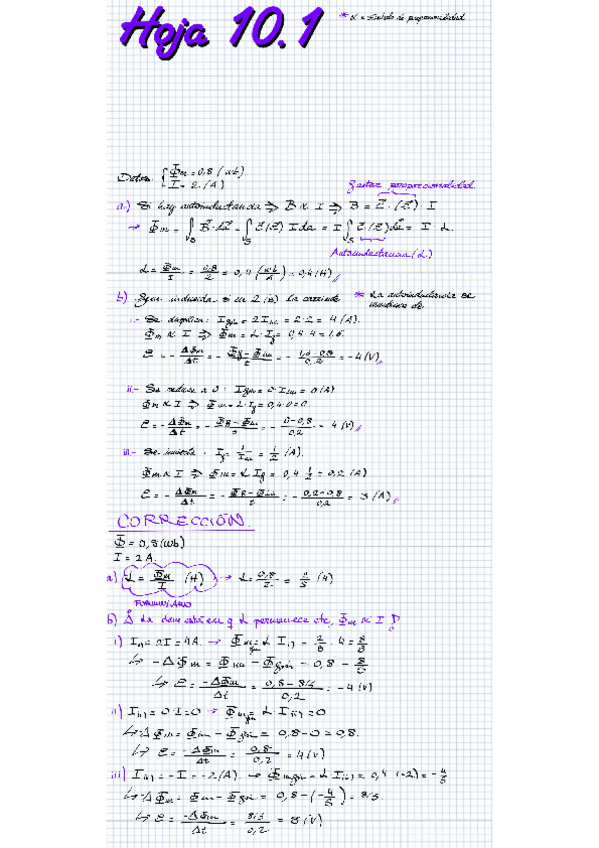 Hoja 10.1
* α = Símbolo de proporcionalidad
Datos: { Φm = 0,8 (wb)
I = 2 (A)
Factor proporcionalidad.
a.) Si hay autoinductancia ⇒ B α I ⇒ B = C⃗ (r⃗) · I
→ Φm = ∫s B⃗ · da⃗ = ∫s C⃗(r⃗) I da = I ∫s C⃗(r⃗) da⃗ = I · L.
Autoinductancia (L)
L = Φm/I = 0,8/2 = 0,4 (wb/A) = 0,4 (H)
b) Fem inducida si en 2 (s) la corriente
* La autoinductancia se
mantiene
i.- Se duplica: Ifin = 2Iin = 2·2 = 4 (A).
Φm α I ⇒ Φm = L·If = 0,4·4 = 1,6.
ε = - ΔΦm/Δt = - Φf - Φin/t = - 1,6 - 0,8/0,2 = -4 (V)
ii.- Se reduce a 0: Ifin = 0·Iin = 0 (A)
Φm α I ⇒ Φm = L·If = 0,4·0 = 0
ε = - ΔΦm/Δt = - Φf - Φin/t = - 0 - 0,8/0,2 = 4 (V)
iii.- Se invierte: If = 1/Iin = 1/2 (A).
Φm α I ⇒ Φm = L If = 0,4 · 1/2 = 0,2 (A)
ε = - ΔΦm/Δt = - Φf - Φin/t = - 0,2 - 0,8/0,2 = 3 (A)
CORRECCIÓN.
Φ = 0,8 (wb)
I = 2 A.
a) L = Φm/I (H) → L = 0,8/2 = 2/5 (H)
FORMULARIO
b) La clave está en q L permanece cte, Φm α I
i) I(i) = 2I = 4A. → Φm fin = L I(i) = 2/5 · 4 = 8/5
↳ -ΔΦm = Φin - Φfin = 0,8 - 8/5
↳ ε = -ΔΦm/Δt = 0,8 - 8/5/0,2 = -4 (V)
ii) I(ii) = 0·I = 0 → Φm fin = L I(ii) = 0
↳ -ΔΦm = Φin - Φfin = 0,8 - 0 = 0,8.
↳ ε = -ΔΦm/Δt = 0,8/0,2 = 4 (V)
iii) I(iii) = -I = -2 (A). → Φm fin = L I(iii) = 0,4 (-2) = -4/5
↳ -ΔΦm = Φin - Φfin = 0,8 - (-4/5) = 8/5
↳ ε = -ΔΦm/Δt = 8/5/0,2 = 8 (V)